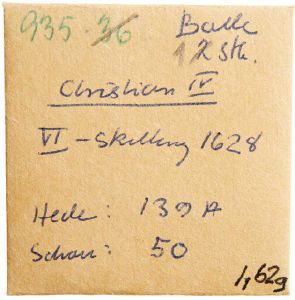 935.36 Balle
12 Stk.
Christian IV
VI - Skilling 1628
Hede: 139 A
Schou: 50
1,62g